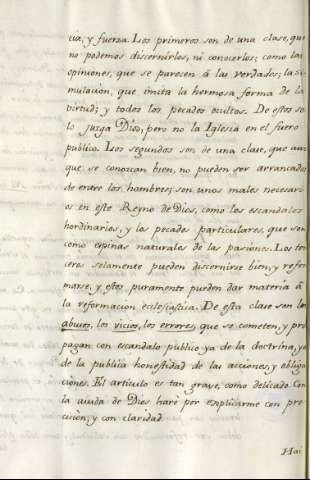 va, y fuerza. Los primeros son de una clase, que
no podemos discernirlos, ni conocerlos; como las
opiniones, que se parecen â las verdades; la si-
mulacion, que imita la hermosa forma de la
virtud; y todos los pecados ocultos. De estos so-
lo juzga Dios, pero no la Iglesia en el fuero
publico. Los segundos son de una clase, que aun
que se conozcan bien, no pueden ser arrancados
de entre los hombres; son unos males necesari-
os en este Reyno de Dios, como los escandalos
hordinarios, y los pecados particulares, que son
como espinas naturales de las pasiones. Los ter-
ceros solamente pueden discernirse bien, y refor-
marse, y estos puramente pueden dar materia â
la reformacion ecclesiastica. De esta clase son los
abusos, los vicios, los errores, que se cometen, y pro-
pagan con escandalo publico ya de la doctrina, ya
de la publica honestidad de las acciones, y obliga-
ciones. El articulo es tan grave, como delicado. Con
la aiuda de Dios harê por explicarme con pre-
cision, y con claridad.
Hai